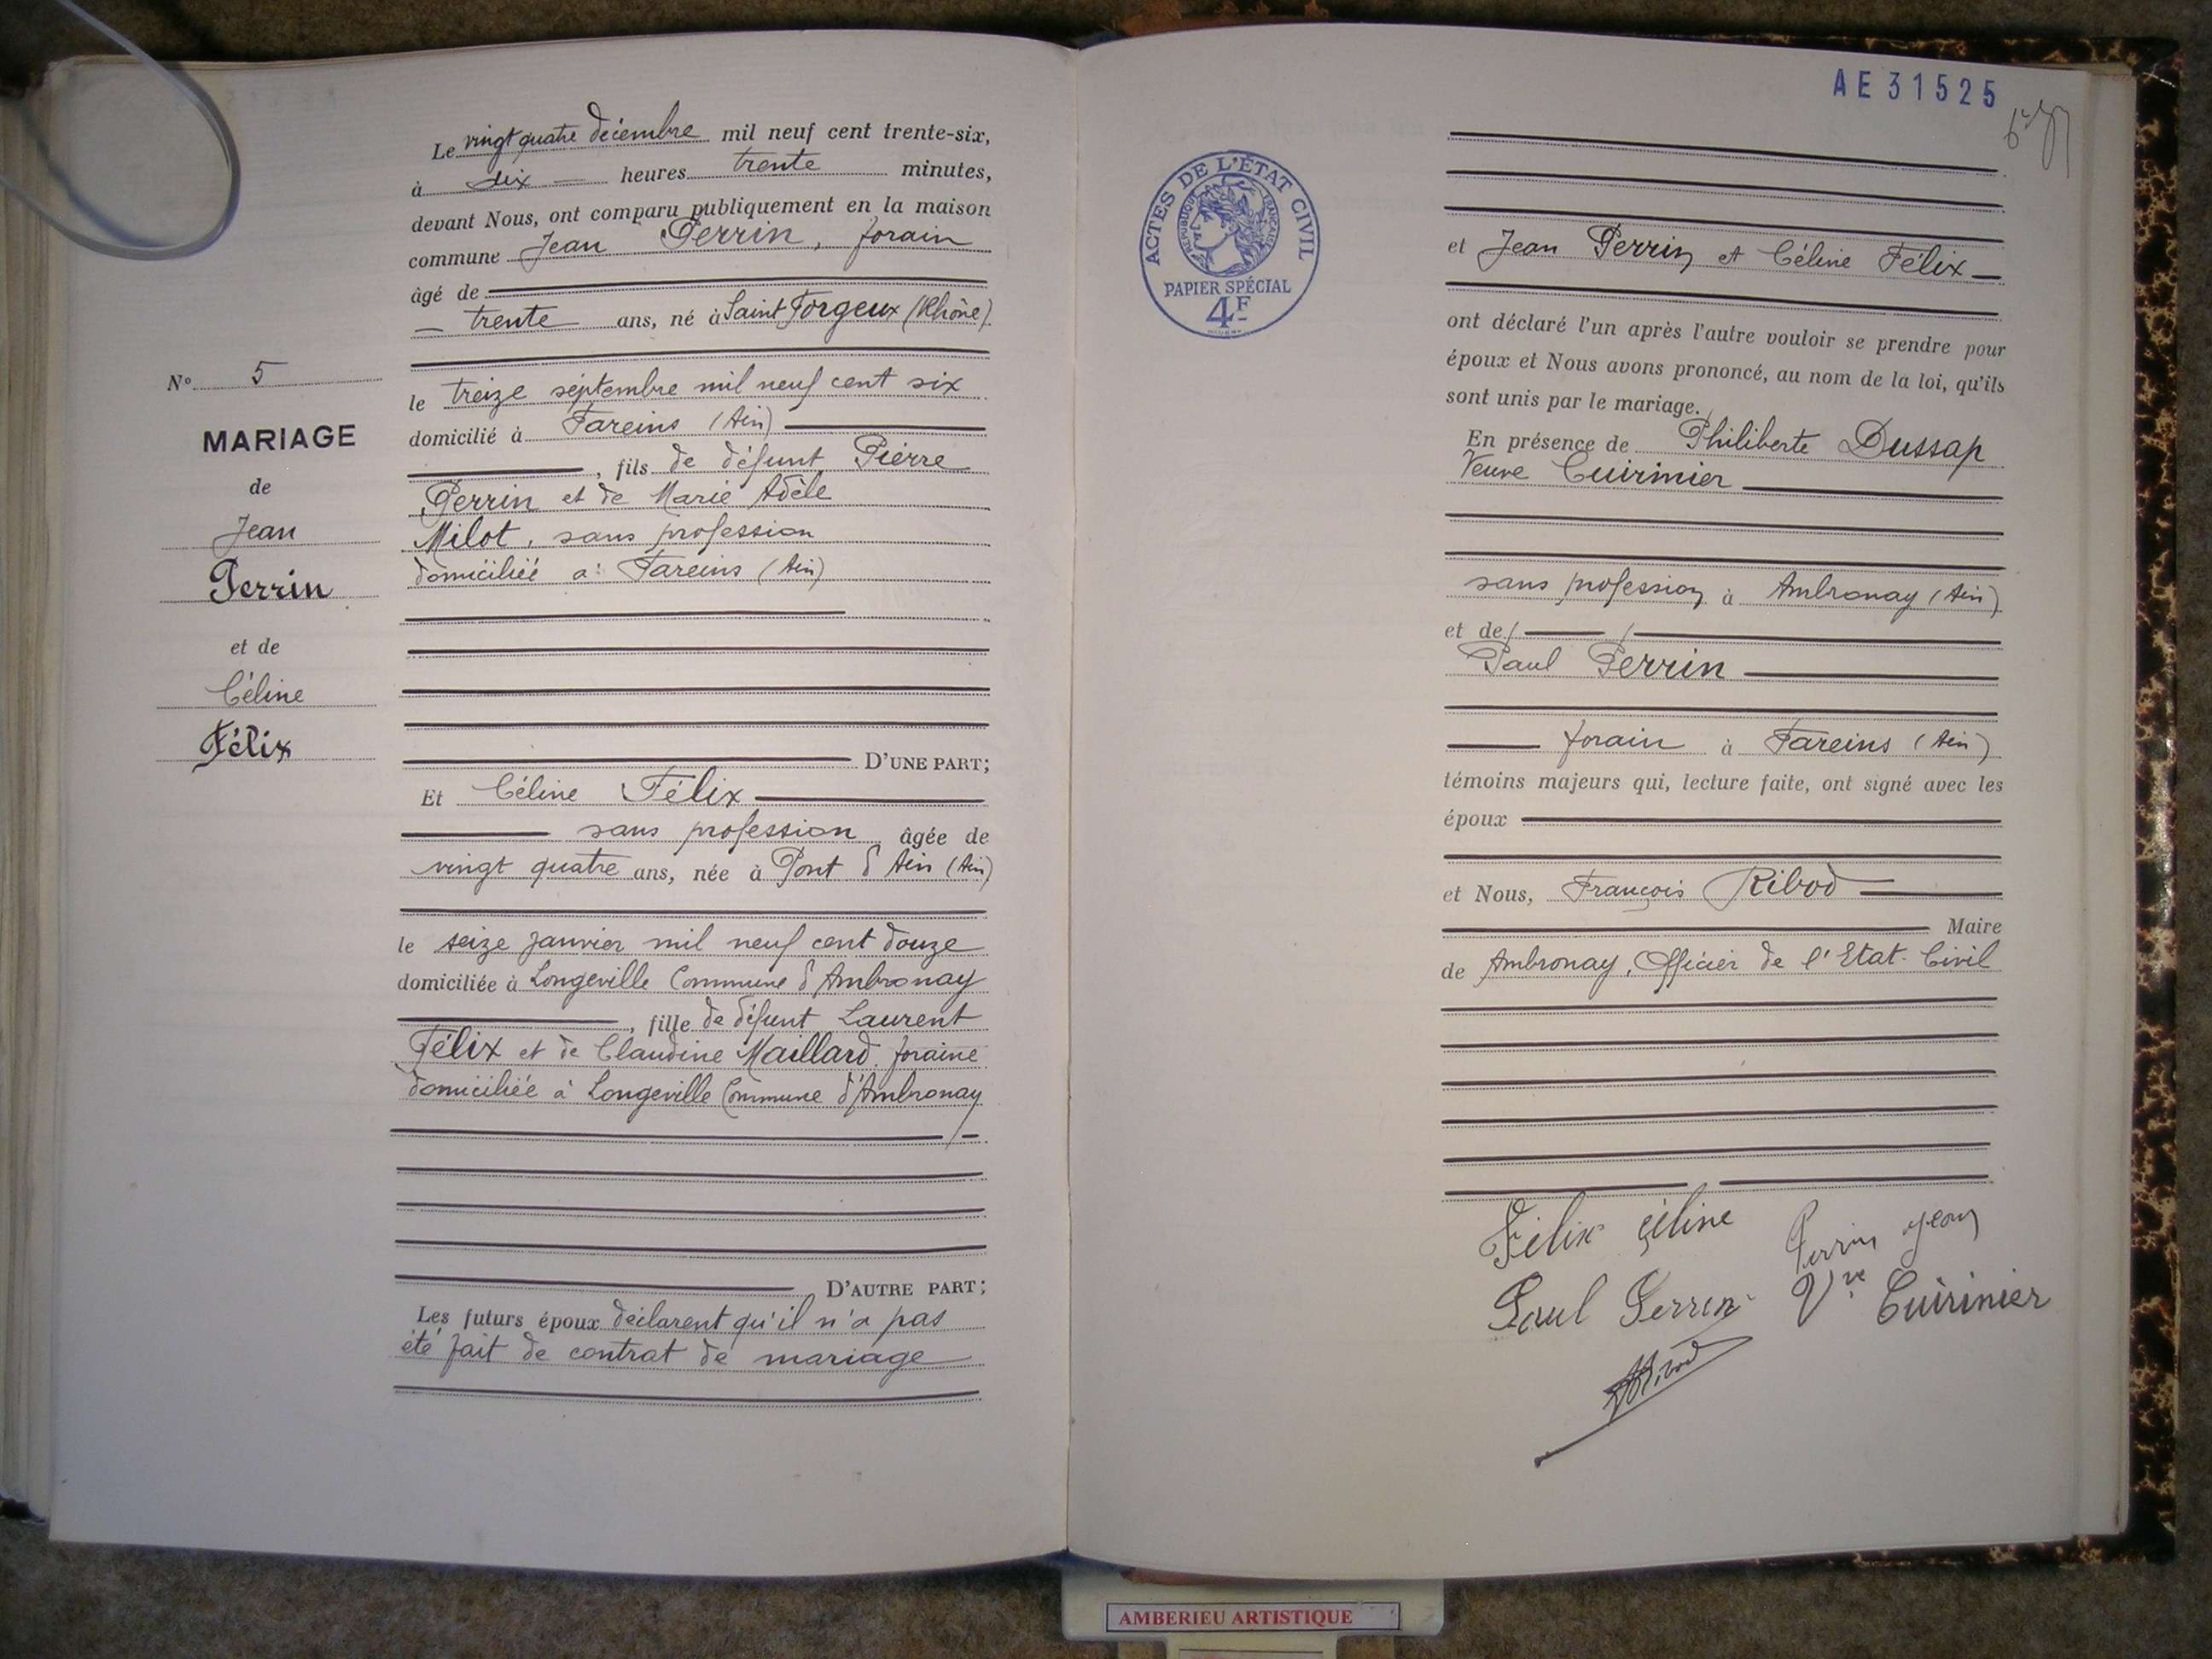 Le vingt quatre décembre mil neuf cent trente-six,
à dix heures trente minutes,
devant Nous, ont comparu publiquement en la maison
commune Jean Perrin, forain
âgé de
trente ans, né à Saint Forgeux (Rhône)
le treize septembre mil neuf cent six
domicilié à Fareins (Ain)
, fils de défunt Pierre
Perrin et de Marie Adèle
Milot, sans profession
domiciliée à Fareins (Ain)
D'UNE PART;
Et Céline Félix
sans profession âgée de
vingt quatre ans, née à Pont d'Ain (Ain)
le seize janvier mil neuf cent douze
domiciliée à Longeville Commune d'Ambronay
, fille de défunt Laurent
Félix et de Claudine Maillard, foraine
domiciliée à Longeville Commune d'Ambronay
D'AUTRE PART;
Les futurs époux déclarent qu'il n'a pas
été fait de contrat de mariage
N° 5
MARIAGE
de
Jean
Perrin
et de
Céline
Félix
AE31525
ACTES DE L'ÉTAT CIVIL
RÉPUBLIQUE FRANÇAISE
PAPIER SPÉCIAL
4F
et Jean Perrin et Céline Félix
ont déclaré l'un après l'autre vouloir se prendre pour
époux et Nous avons prononcé, au nom de la loi, qu'ils
sont unis par le mariage.
En présence de Philiberte Dussap
Veuve Cuirinier
sans profession à Ambronay (Ain)
et de
Paul Perrin
forain à Fareins (Ain)
témoins majeurs qui, lecture faite, ont signé avec les
époux
et Nous, François Ribod
Maire
de Ambronay, Officier de l'Etat-Civil
Félix Céline Perrin Jean
Paul Perrin Vve Cuirinier
Ribod
AMBERIEU ARTISTIQUE